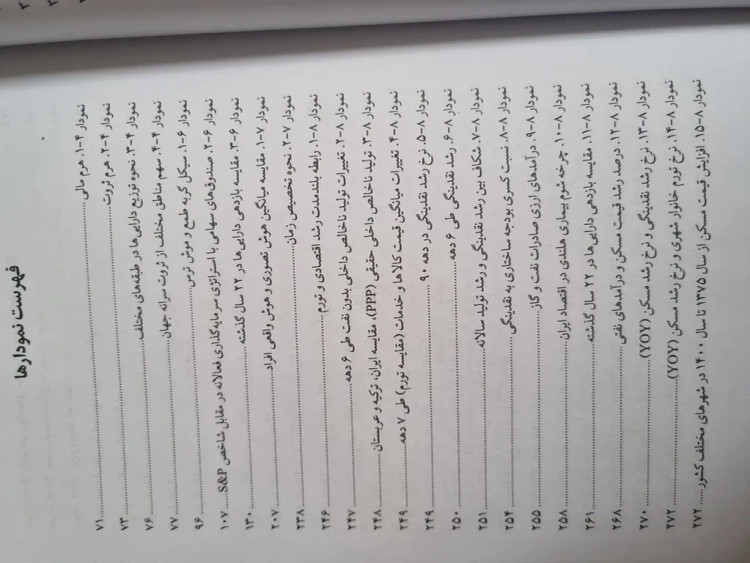 فهرست نمودارها
نمودار ۴-۱. هرم مالی ........ ۷۱
نمودار ۴-۲. هرم ثروت ........ ۷۳
نمودار ۴-۳. نحوه توزیع دارایی‌ها در طبقه‌های مختلف ........ ۷۶
نمودار ۴-۴. سهم مناطق مختلف از ثروت سرانه جهان ........ ۷۷
نمودار ۶-۱. سیکل گربه طمع و موش ترس ........ ۹۶
نمودار ۶-۲. صندوق‌های سهامی با استراتژی سرمایه‌گذاری فعالانه در مقابل شاخص S&P ........ ۱۰۷
نمودار ۶-۳. مقایسه بازدهی دارایی‌ها در ۲۲ سال گذشته ........ ۱۳۰
نمودار ۷-۱. مقایسه میانگین هوش تصوری و هوش واقعی افراد ........ ۲۰۷
نمودار ۷-۲. نحوه تخصیص زمان ........ ۲۳۸
نمودار ۸-۱. رابطه بلندمدت رشد اقتصادی و تورم ........ ۲۴۶
نمودار ۸-۲. تغییرات تولید ناخالص داخلی بدون نفت طی ۶ دهه ........ ۲۴۷
نمودار ۸-۳. تولید ناخالص داخلی حقیقی (PPP)، مقایسه ایران، ترکیه و عربستان ........ ۲۴۸
نمودار ۸-۴. تغییرات میانگین قیمت کالاها و خدمات (مقایسه تورم) طی ۷ دهه ........ ۲۴۹
نمودار ۸-۵. نرخ رشد نقدینگی در دهه ۹۰ ........ ۲۴۹
نمودار ۸-۶. رشد نقدینگی طی ۶ دهه ........ ۲۵۰
نمودار ۸-۷. شکاف بین رشد نقدینگی و رشد تولید سالانه ........ ۲۵۱
نمودار ۸-۸. نسبت کسری بودجه ساختاری به نقدینگی ........ ۲۵۴
نمودار ۸-۹. درآمدهای ارزی صادرات نفت و گاز ........ ۲۵۵
نمودار ۸-۱۰. چرخه شوم بیماری هلندی در اقتصاد ایران ........ ۲۵۸
نمودار ۸-۱۱. مقایسه بازدهی دارایی‌ها در ۲۲ سال گذشته ........ ۲۶۱
نمودار ۸-۱۲. درصد رشد قیمت مسکن و درآمدهای نفتی ........ ۲۶۸
نمودار ۸-۱۳. نرخ رشد نقدینگی و نرخ رشد مسکن (YOY) ........ ۲۷۰
نمودار ۸-۱۴. نرخ تورم خانوار شهری و نرخ رشد مسکن (YOY) ........ ۲۷۲
نمودار ۸-۱۵. افزایش قیمت مسکن از سال ۱۳۷۵ تا سال ۱۴۰۰ در شهرهای مختلف کشور ........ ۲۷۲